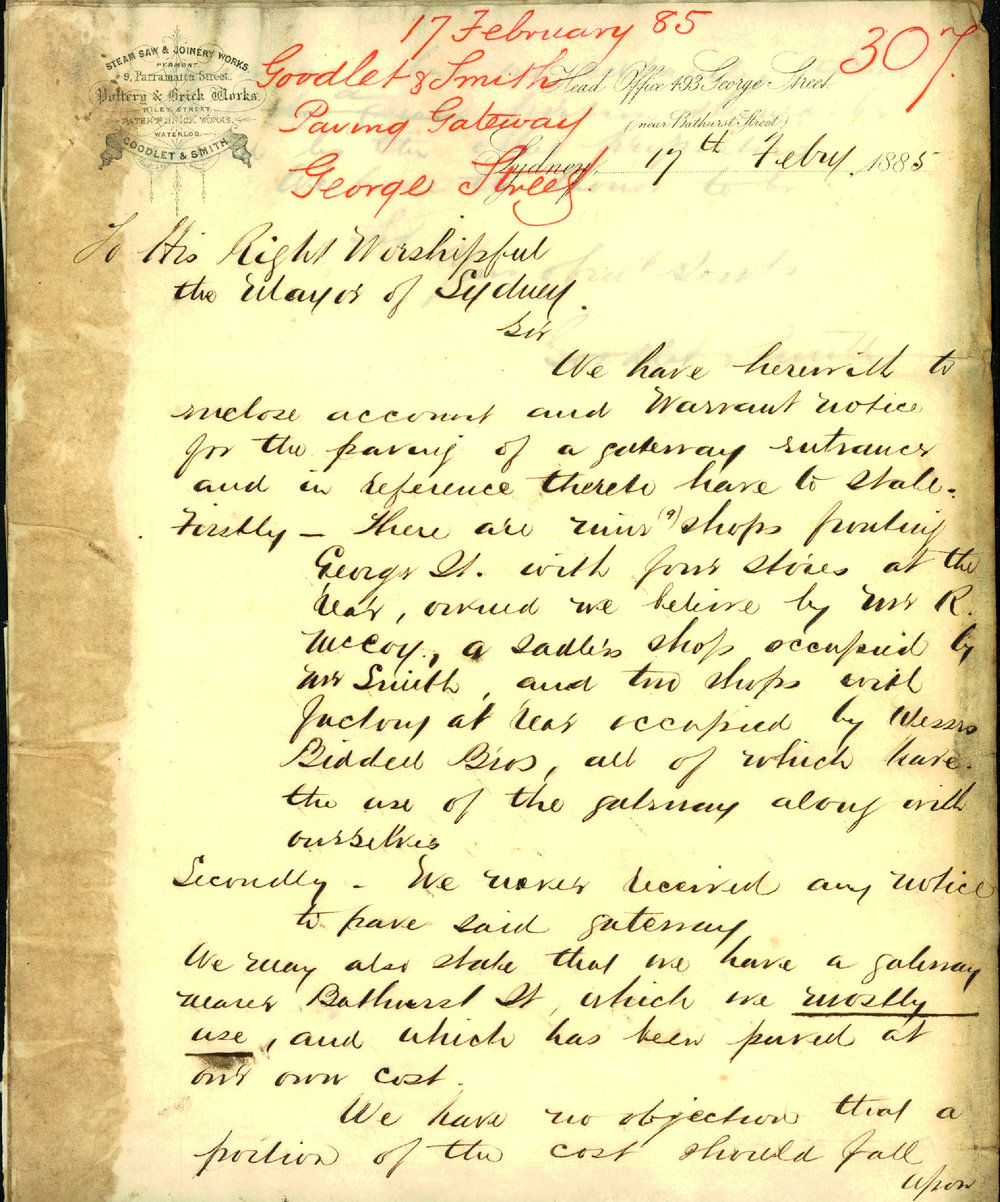 17 February 85
307
Goodlet & Smith
Paving Gateway
George Street
STEAM SAW & JOINERY WORKS
PYRMONT
9, Parramatta Street.
Pottery & Brick Works.
RILEY STREET
PATENT BRICK WORKS.
WATERLOO.
GOODLET & SMITH
Head Office 493 George Street.
(near Bathurst Street)
Sydney, 17th Febry 1885
To His Right Worshipful
the Mayor of Sydney.
Sir
We have herewith to
enclose account and Warrant notice
for the paving of a gateway entrance
and in reference thereto have to state.
Firstly – There are nine (9) shops fronting
George St. with four stores at the
rear, owned we believe by Mr R.
McCoy, a sadlers shop occupied by
Mr Smith, and two shops with
factory at rear occupied by Messrs
Biddell Bros, all of which have
the use of the gateway along with
ourselves
Secondly – We never received any notice
to pave said gateway
We may also state that we have a gateway
nearer Bathurst St, which we mostly
use, and which has been paved at
our own cost.
We have no objection that a
portion of the cost should fall
upon